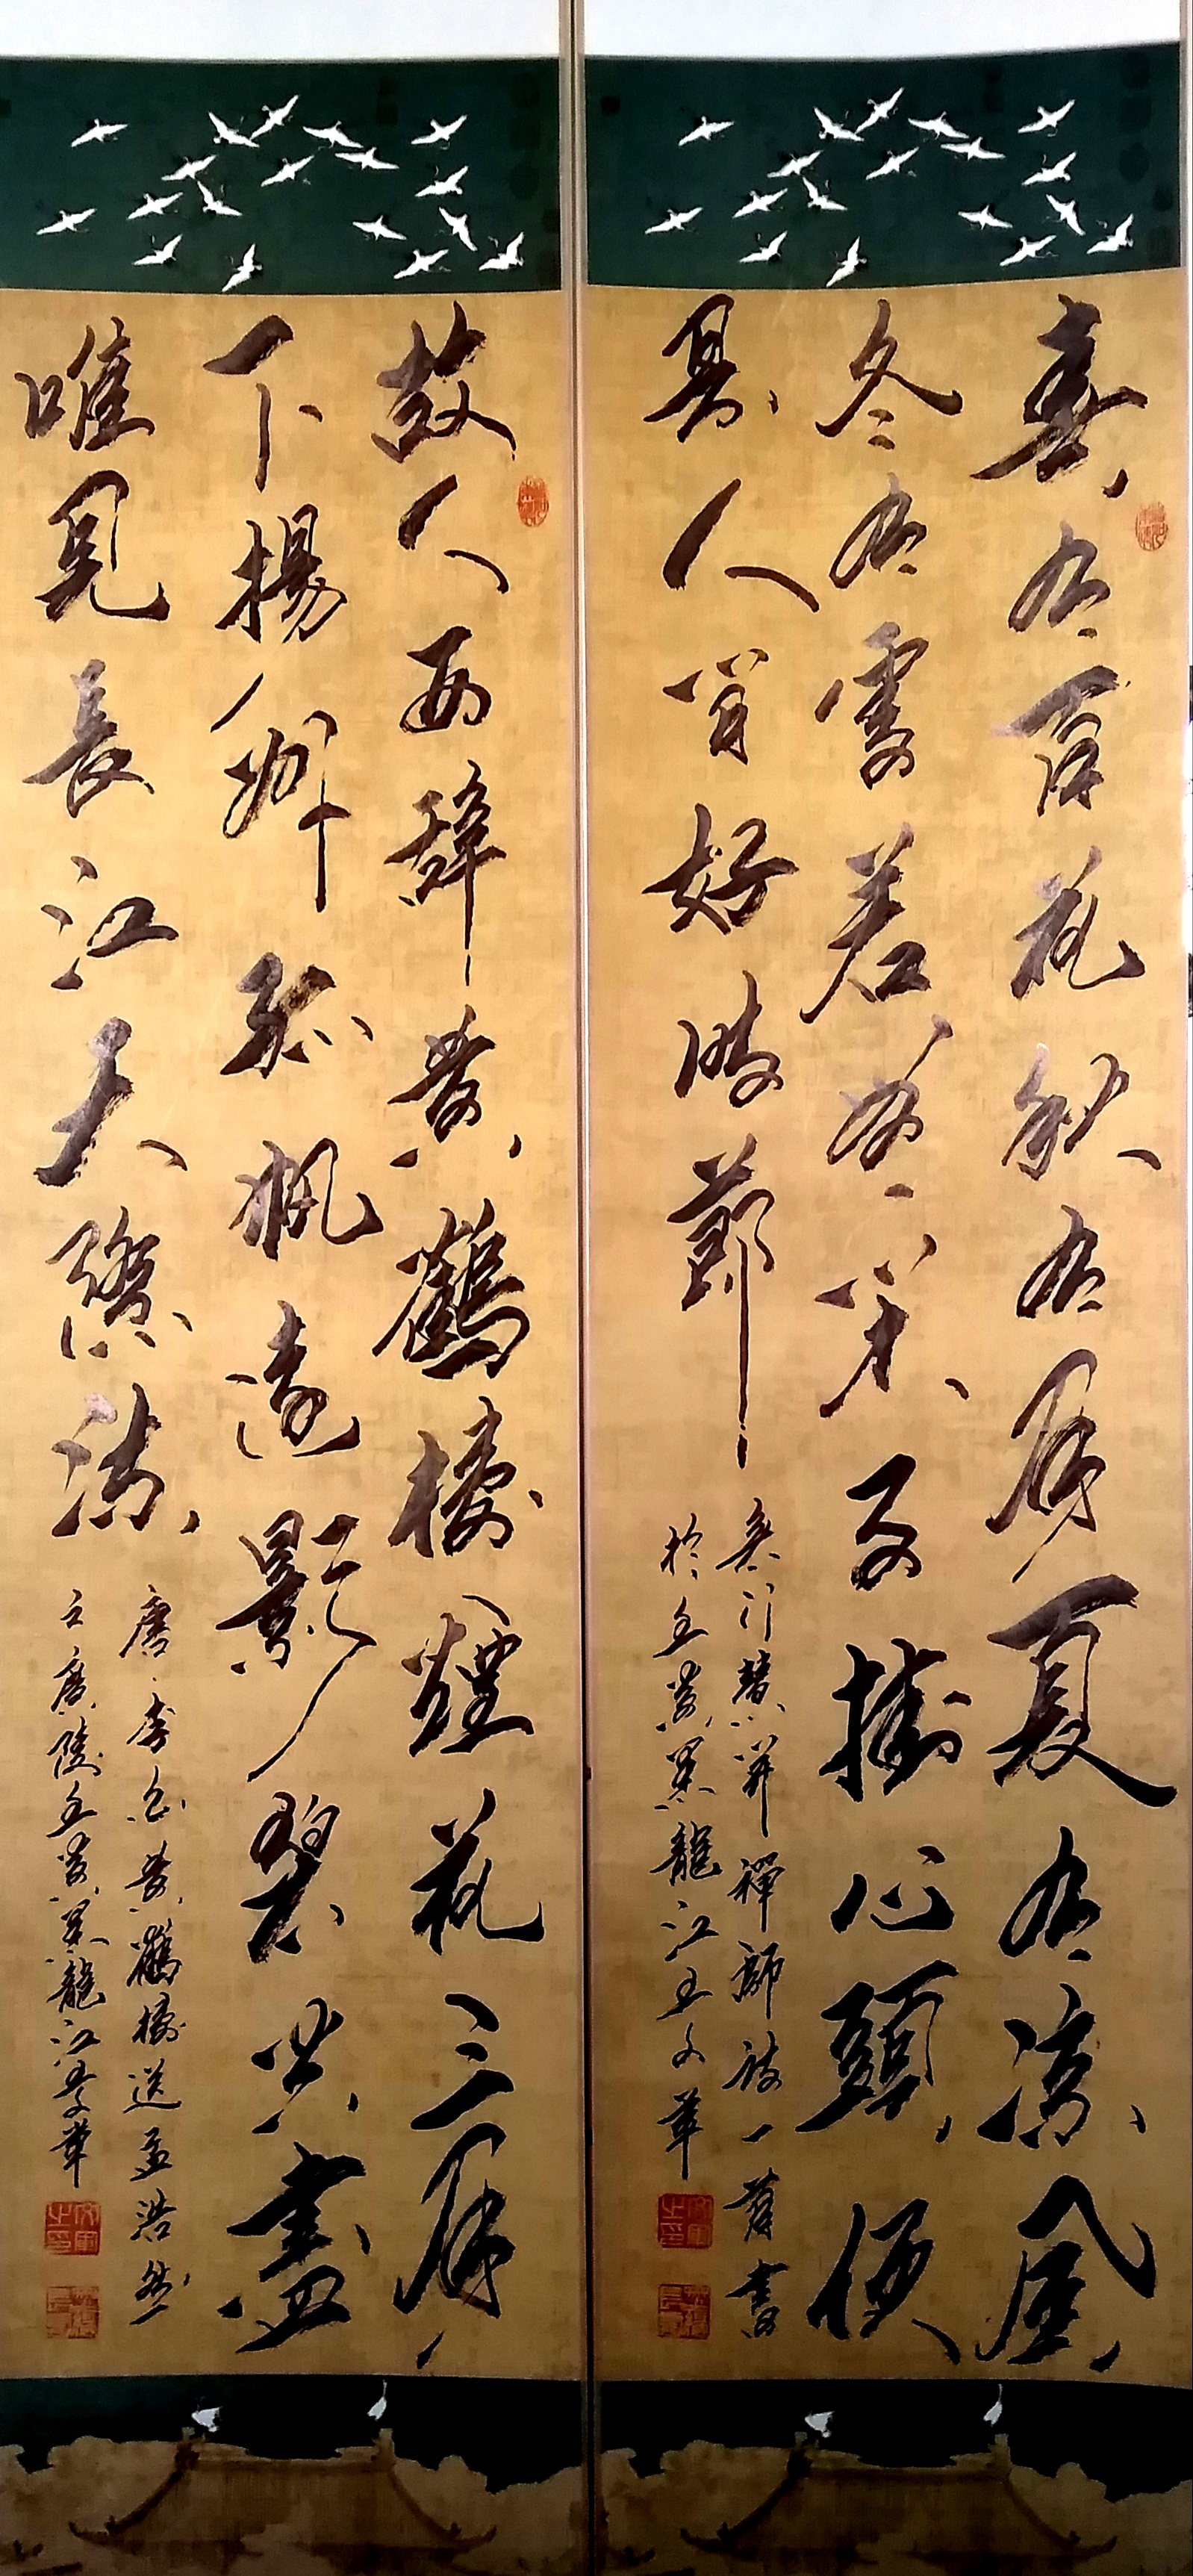 春有百花秋有月夏有凉風
冬有雪若無閑事掛心頭便
是人間好時節
無門慧開禪師詩一首書
於五常黑龍江王文軍
故人西辭黃鶴樓煙花三月
下揚州孤帆遠影碧空盡
唯見長江天際流
唐李白黃鶴樓送孟浩然
之廣陵五常黑龍江文軍